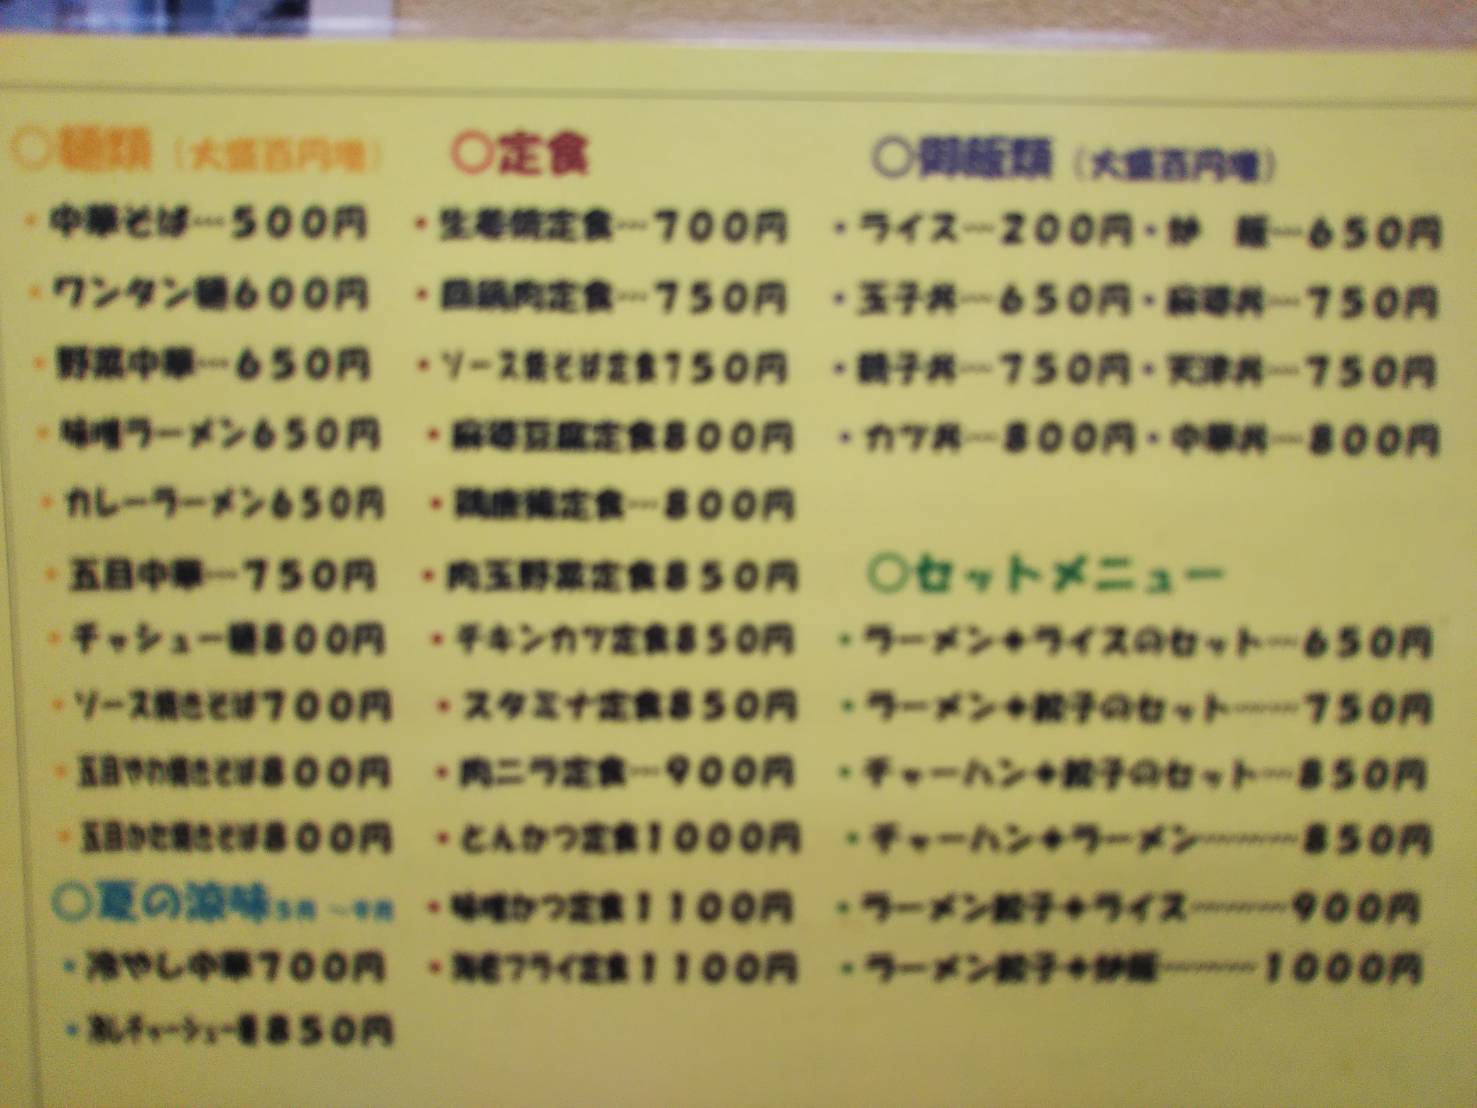 ○麺類（大盛百円増）
・中華そば…５００円
・ワンタン麺６００円
・野菜中華…６５０円
・味噌ラーメン６５０円
・カレーラーメン６５０円
・五目中華…７５０円
・チャシュー麺８００円
・ソース焼きそば７００円
・五目やわ焼きそば８００円
・五目かた焼きそば８００円
○夏の涼味 5月～9月
・冷やし中華７００円
・冷しチャーシュー麺８５０円
○定食
・生姜焼定食…７００円
・回鍋肉定食…７５０円
・ソース焼そば定食７５０円
・麻婆豆腐定食８００円
・鶏唐揚定食…８００円
・肉玉野菜定食８５０円
・チキンカツ定食８５０円
・スタミナ定食８５０円
・肉ニラ定食…９００円
・とんかつ定食１０００円
・味噌かつ定食１１００円
・海老フライ定食１１００円
○御飯類（大盛百円増）
・ライス…２００円・炒　飯…６５０円
・玉子丼…６５０円・麻婆丼…７５０円
・親子丼…７５０円・天津丼…７５０円
・カツ丼…８００円・中華丼…８００円
○セットメニュー
・ラーメン+ライスのセット…６５０円
・ラーメン+餃子のセット……７５０円
・チャーハン+餃子のセット…８５０円
・チャーハン+ラーメン………８５０円
・ラーメン餃子+ライス………９００円
・ラーメン餃子+炒飯………１０００円